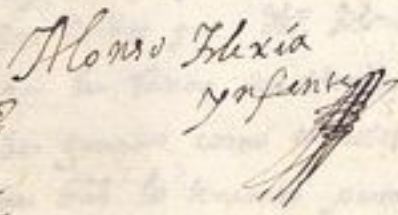 Alonso Mexía
ynfante